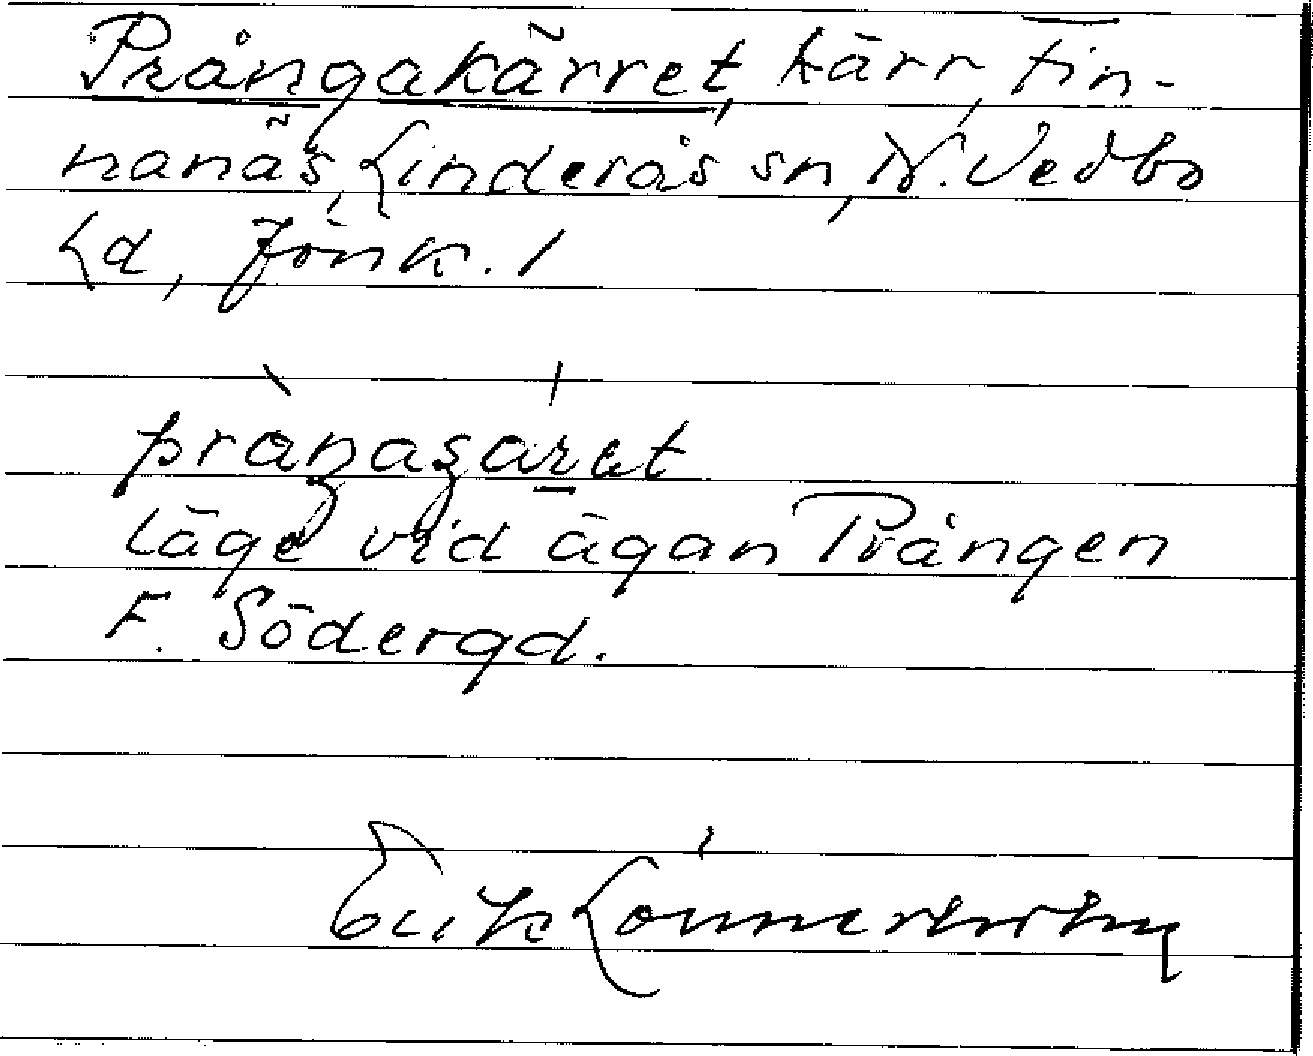 Prångakärret, kärr, Fin-
nanäs, Linderås sn, N. Vedbo
hd, Jönk. l
läge vid ägan Prången
F. Södergd.
Erik